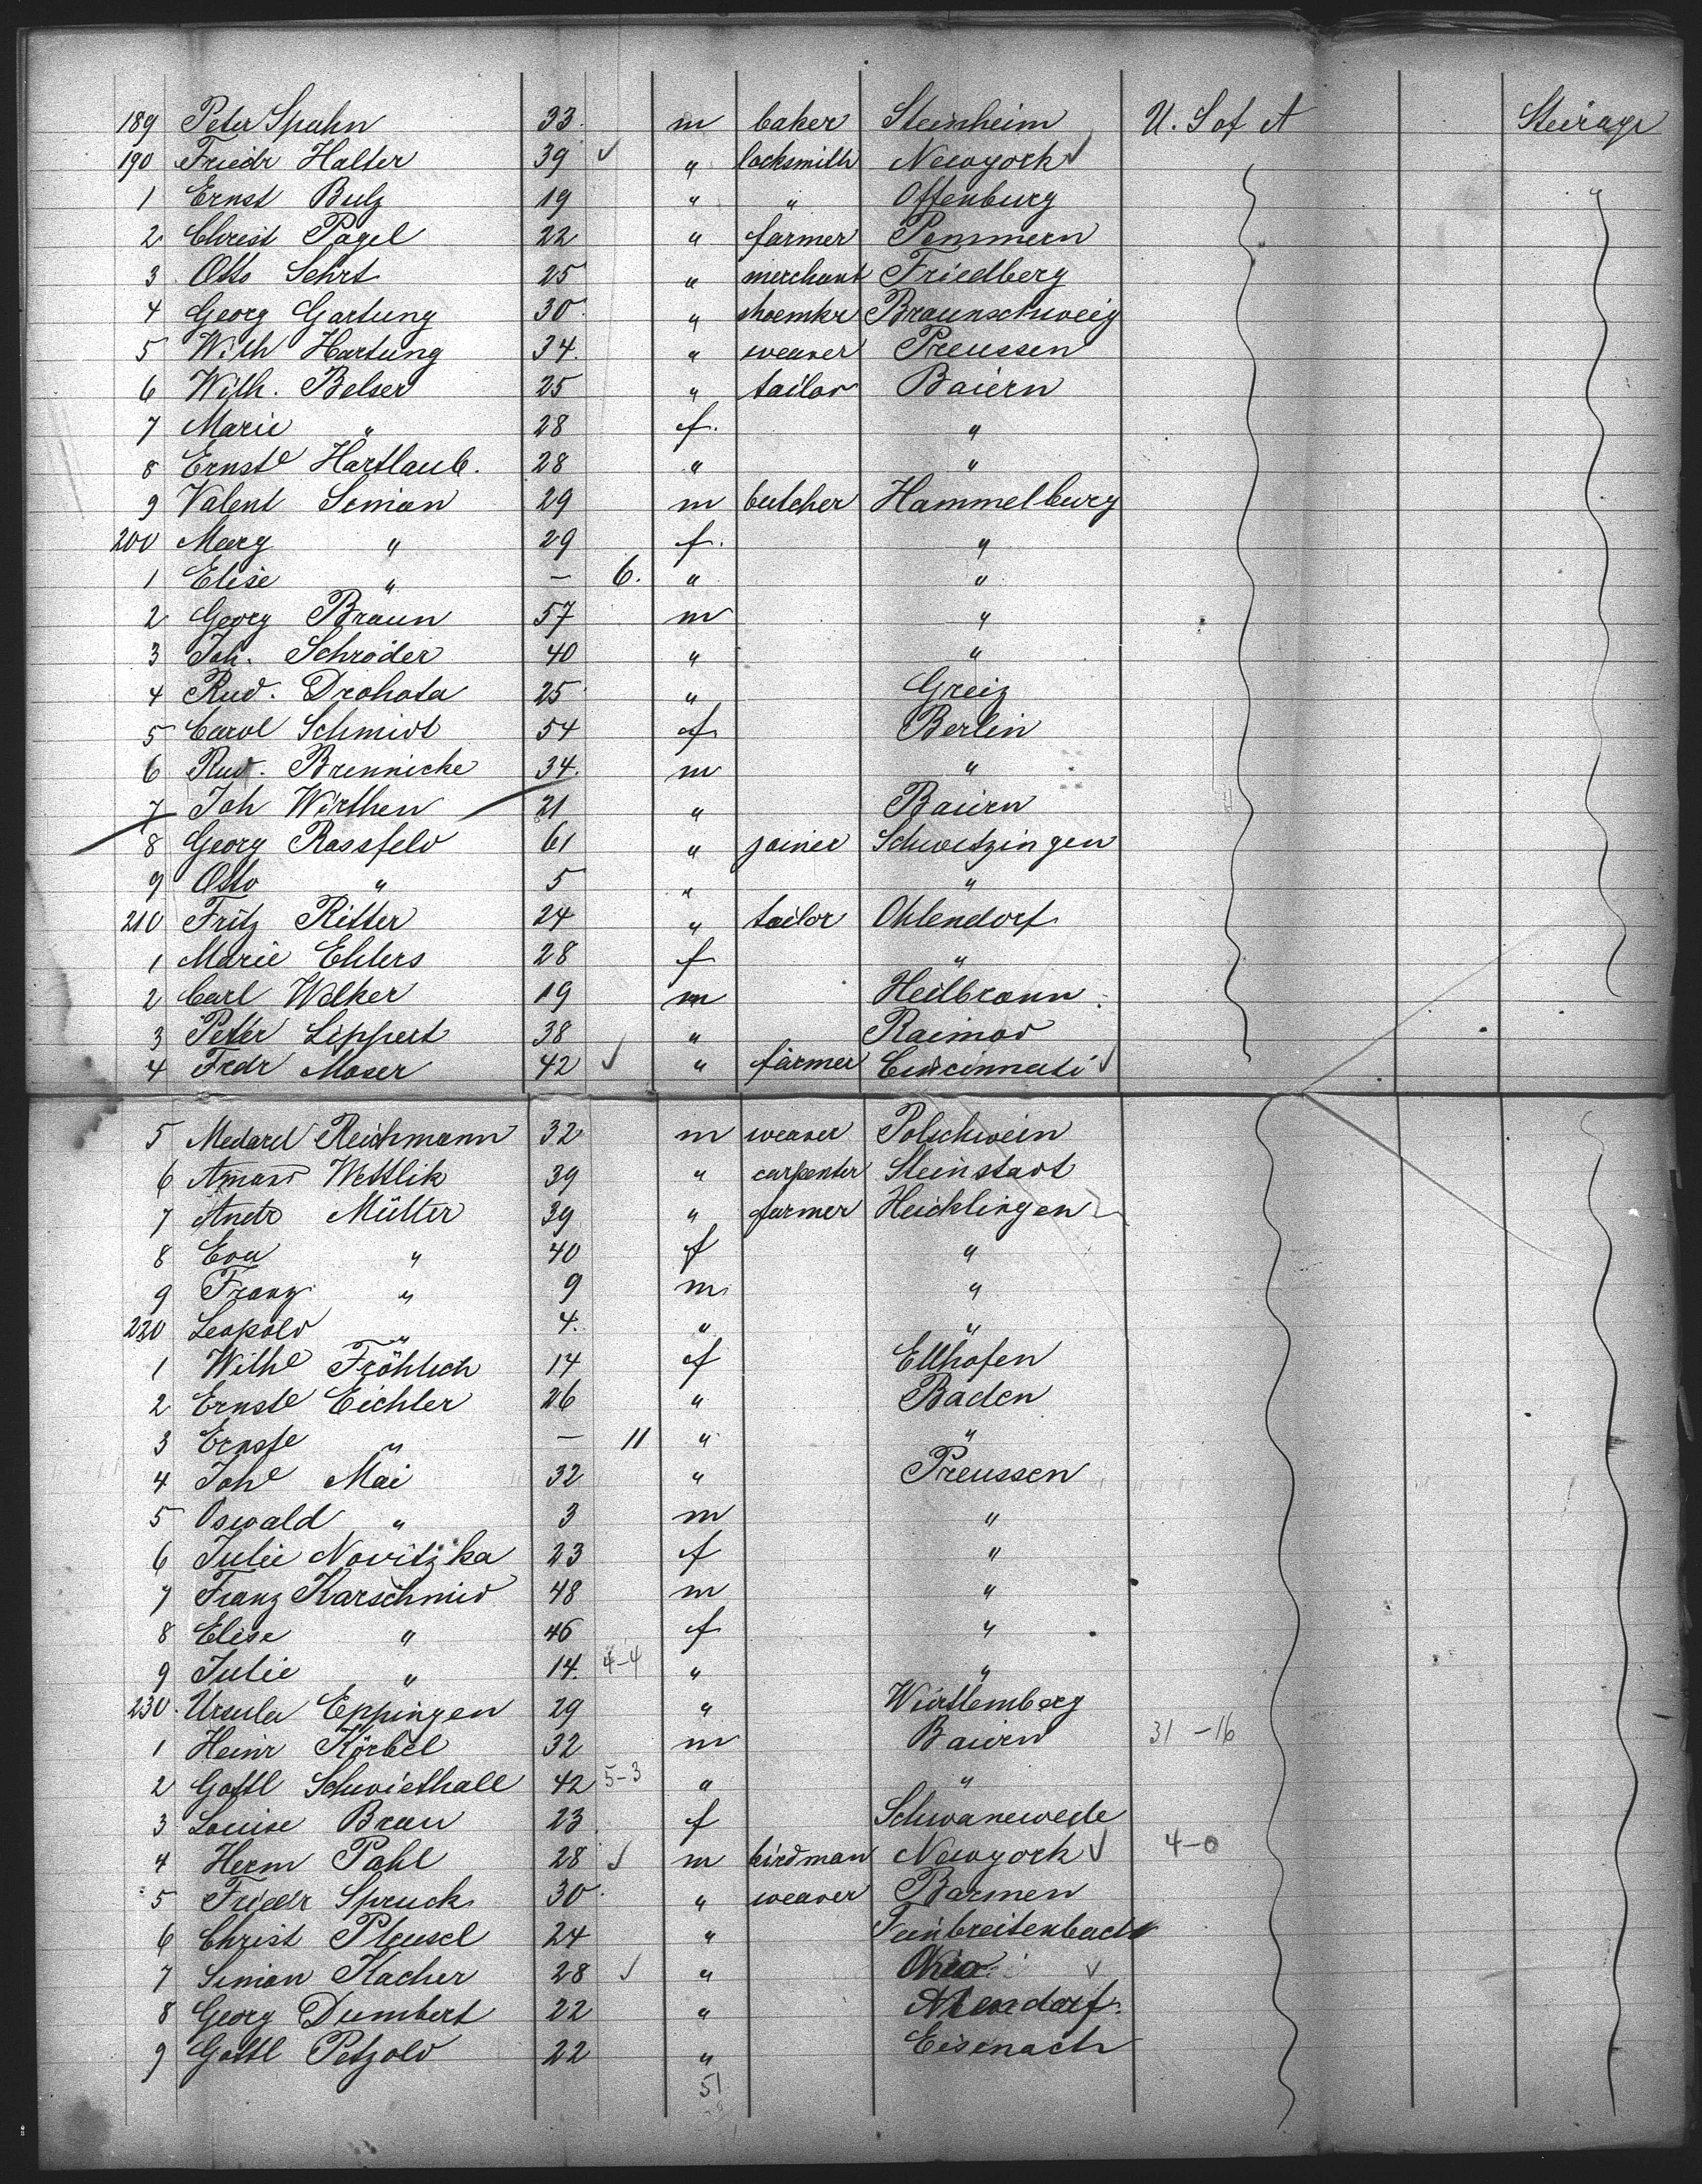 189 Peter Spahn 33. m baker Steinheim U. S of A Steirage
190 Friedr Halter 39 ✓ " locksmith Newyork ✓
1 Ernst Bulz 19 " " Offenburg "
2 Christ Pagel 22 " farmer Pommern
3 Otto Sehrt 25 " merchant Friedberg
4 Georg Gartung 30 " shoemkr Braunschweig
5 Wilh Hartung 34. " weaver Preussen
6 Wilh. Belser 25 " tailor Baiern
7 Marie " 28 f. "
8 Ernste Hartlaub. 28 " "
9 Valent Simon 29 m butcher Hammelburg
200 Marg " 29 f. "
1 Elise " — 6. " "
2 Georg Braun 57 m "
3 Joh. Schröder 40 " "
4 Rud. Drohota 25 " Greiz
5 Carol Schmidt 54 f Berlin
6 Rud. Brennicke 34. m "
7 Joh Wirthen 21 " Baiern
8 Georg Rassfeld 61 " joiner Schwetzingen
9 Otto " 5 " "
210 Fritz Ritter 24 " tailor Ohlendorf
1 Marie Ehlers 28 f "
2 Carl Walker 19 m Heilbronn
3 Peter Lippert 38 " Raimod
4 Fredr Moser 42 ✓ " farmer Cincinnati ✓
5 Medard Reichmann 32 m weaver Polschwein
6 Amand Wettlik 39 " carpenter Steinstadt
7 Andr Müller 39 " farmer Heicklingen
8 Eva " 40 f "
9 Franz " 9 m "
220 Leopold " 4. " "
1 Wilhe Fröhlich 14 f Ellhofen
2 Ernste Eichler 26 " Baden
3 Ernste " — 11 " "
4 Johe Mai 32 " Preussen
5 Oswald " 3 m "
6 Julie Novitzka 23 f "
7 Franz Karschmid 48 m "
8 Elise " 46 f "
9 Julie " 14. 4-4 " "
230. Ursula Eppingen 29 " Würtemberg
1 Heinr Körbel 32 m Baiern 31 - 16
2 Gottl Schwiethall 42 5-3 " "
3 Louise Brau 23 f Schwanewede
4 Herm Pahl 28 ✓ m birdman Newyork ✓ 4-0
5 Friedr Spruck 30. " weaver Barmen
6 Christ Pleusel 24 "
7 Simon Kacher 28 ✓ " Ohio ✓
8 Georg Dumbert 22 "
9 Gottl Petzold 22 " Eisenach
51